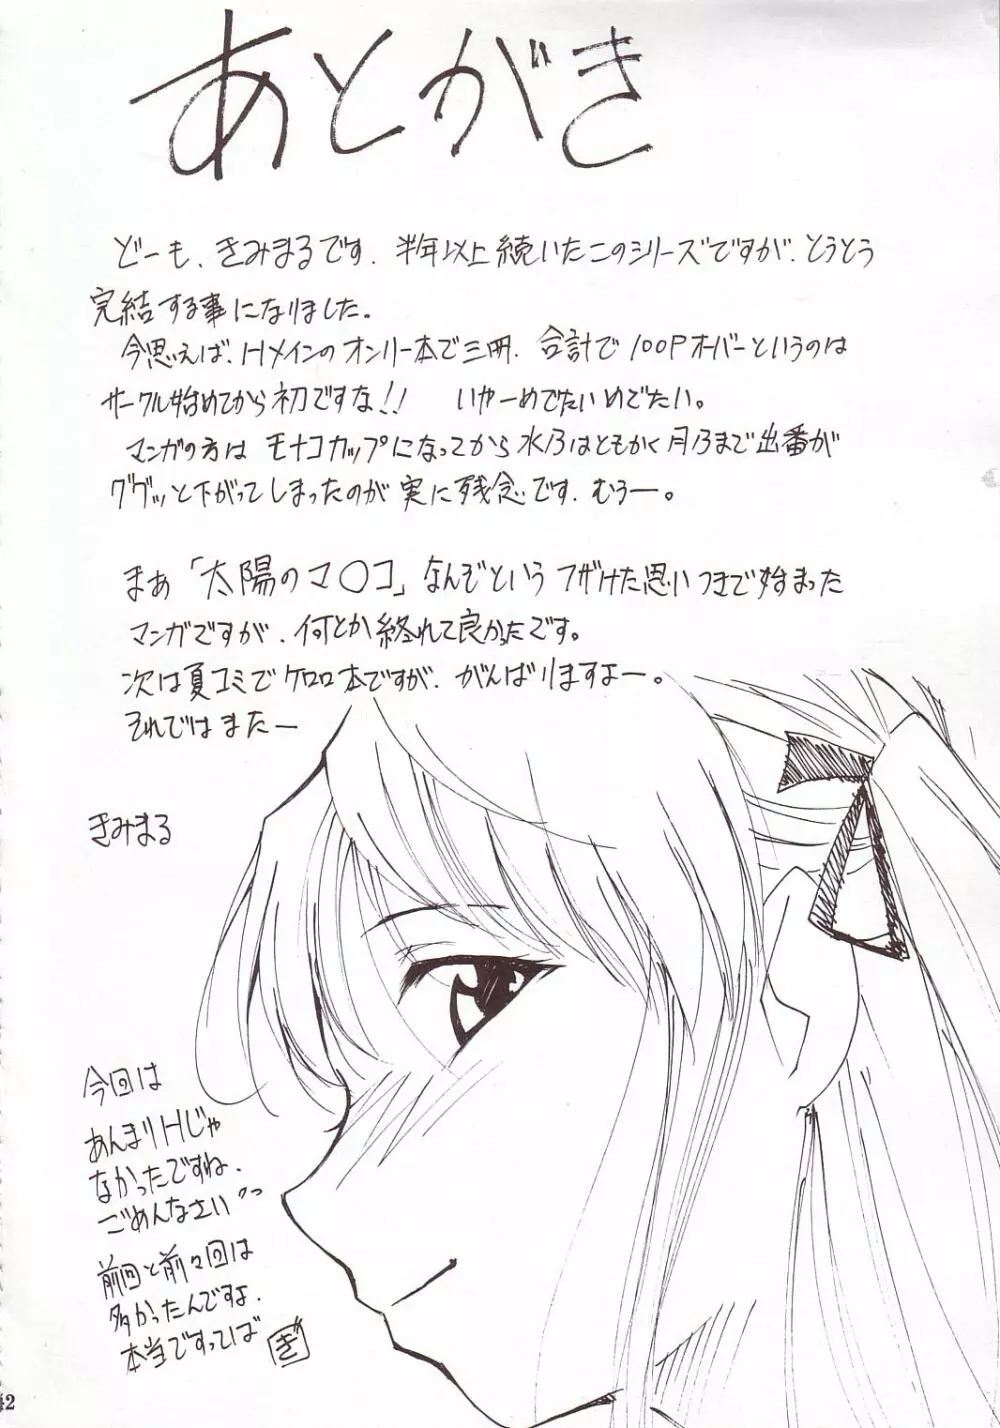 あとがき
どーも、きみまるです。半年以上続いたこのシリーズですが、とうとう
完結する事になりました。
今思えば、Hメインのオンリー本で三冊、合計で100Pオーバーというのは
サークル始めてから初ですな!! いやーめでたいめでたい。
マンガの方はモナコカップになってから水乃はともかく月乃まで出番が
ググッと下がってしまったのが実に残念です。むぅー。
まぁ「太陽のマ〇コ」なんぞというフザけた思いつきで始まった
マンガですが、何とか終れて良かったです。
次は夏コミでケロロ本ですが、がんばりますよー。
それではまたー
きみまる
今回は
あんまりHじゃ
なかったですね、
ごめんなさいっ
前回と前々回は
多かったんですよ、
本当ですってば
42